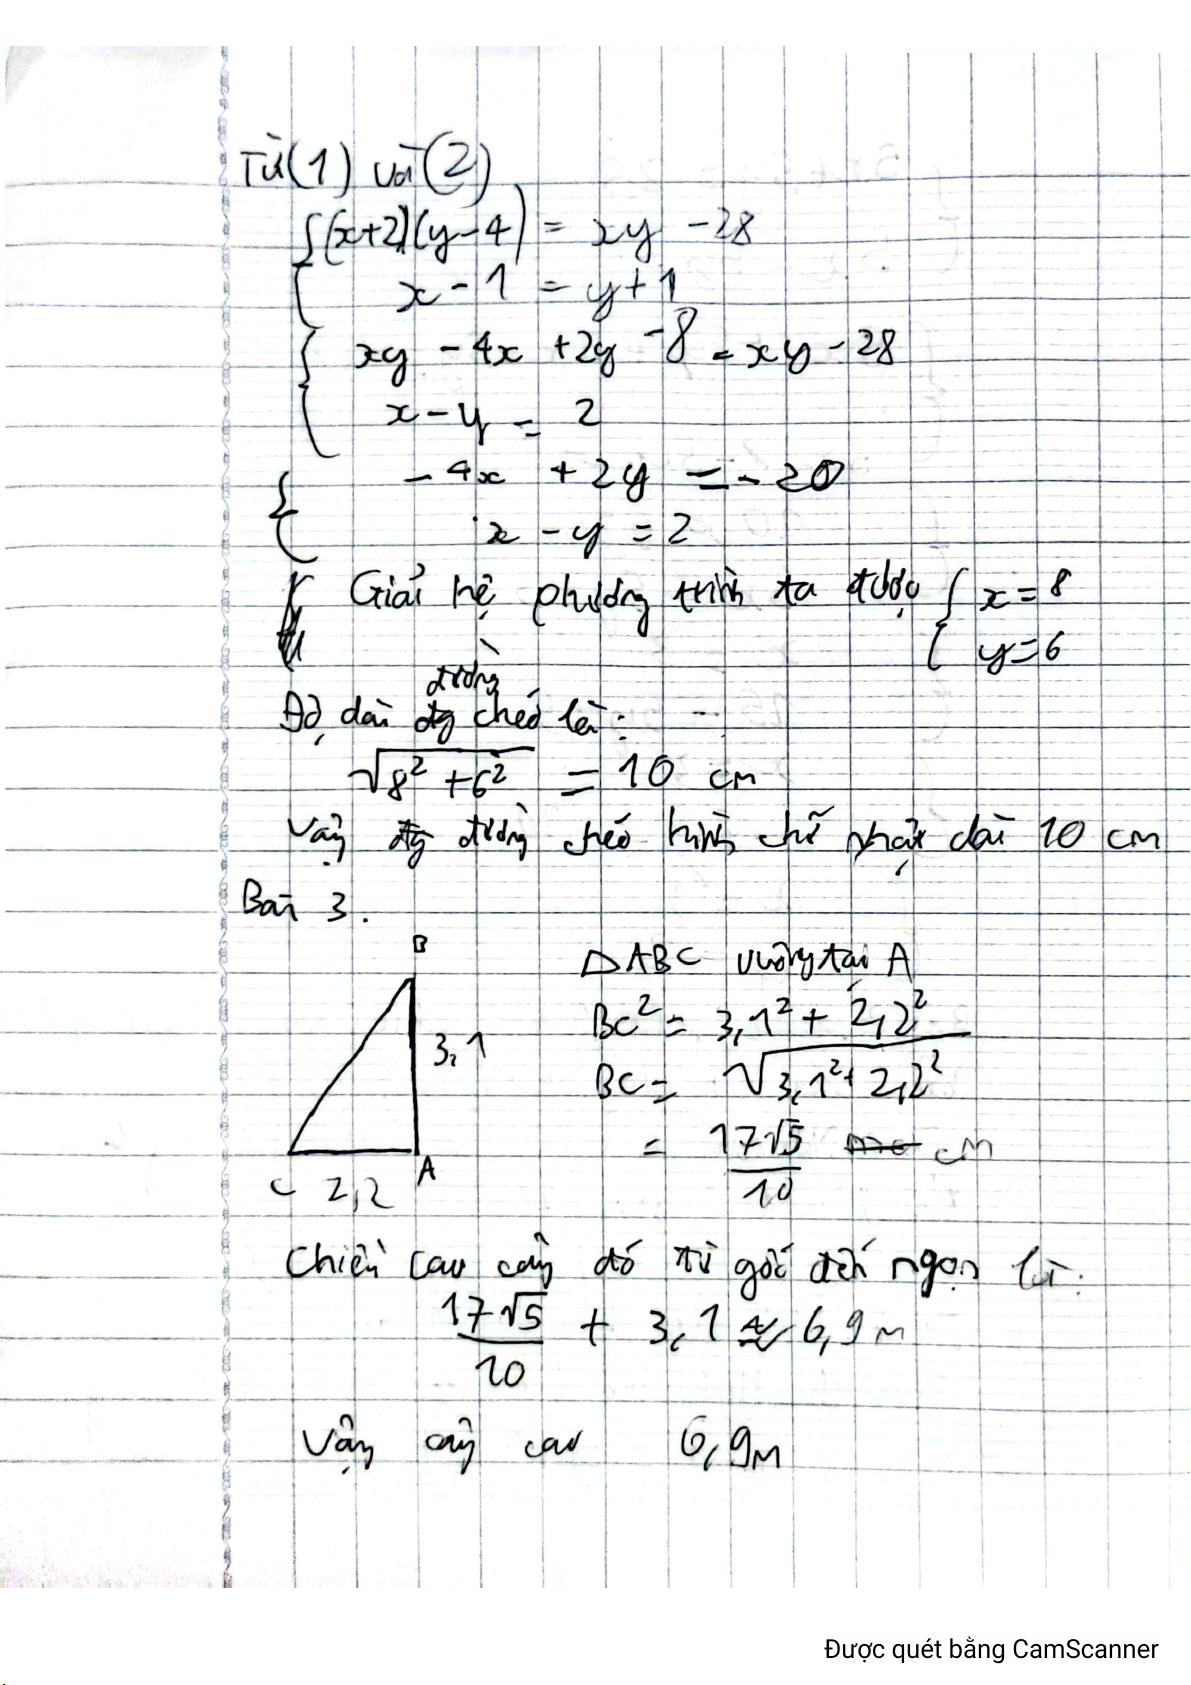 Từ (1) và (2)
{ (x+2)(y-4) = xy - 28
x - 1 = y + 1
{ xy - 4x + 2y - 8 = xy - 28
x - y = 2
{ - 4x + 2y = - 20
x - y = 2
Giải hệ phương trình ta được { x = 8
y = 6
đường
Độ dài đg chéo là:
√(8² + 6²) = 10 cm
Vậy đg đường chéo hình chữ nhật dài 10 cm
Bài 3.
B
3,1
C 2,2 A
△ABC vuông tại A
BC² = 3,1² + 2,2²
BC = √(3,1² + 2,2²)
= 17√5/10 cm
Chiều cao cây đó từ gốc đến ngọn là:
17√5/10 + 3,1 ≈ 6,9 m
Vậy cây cao 6,9m
Được quét bằng CamScanner